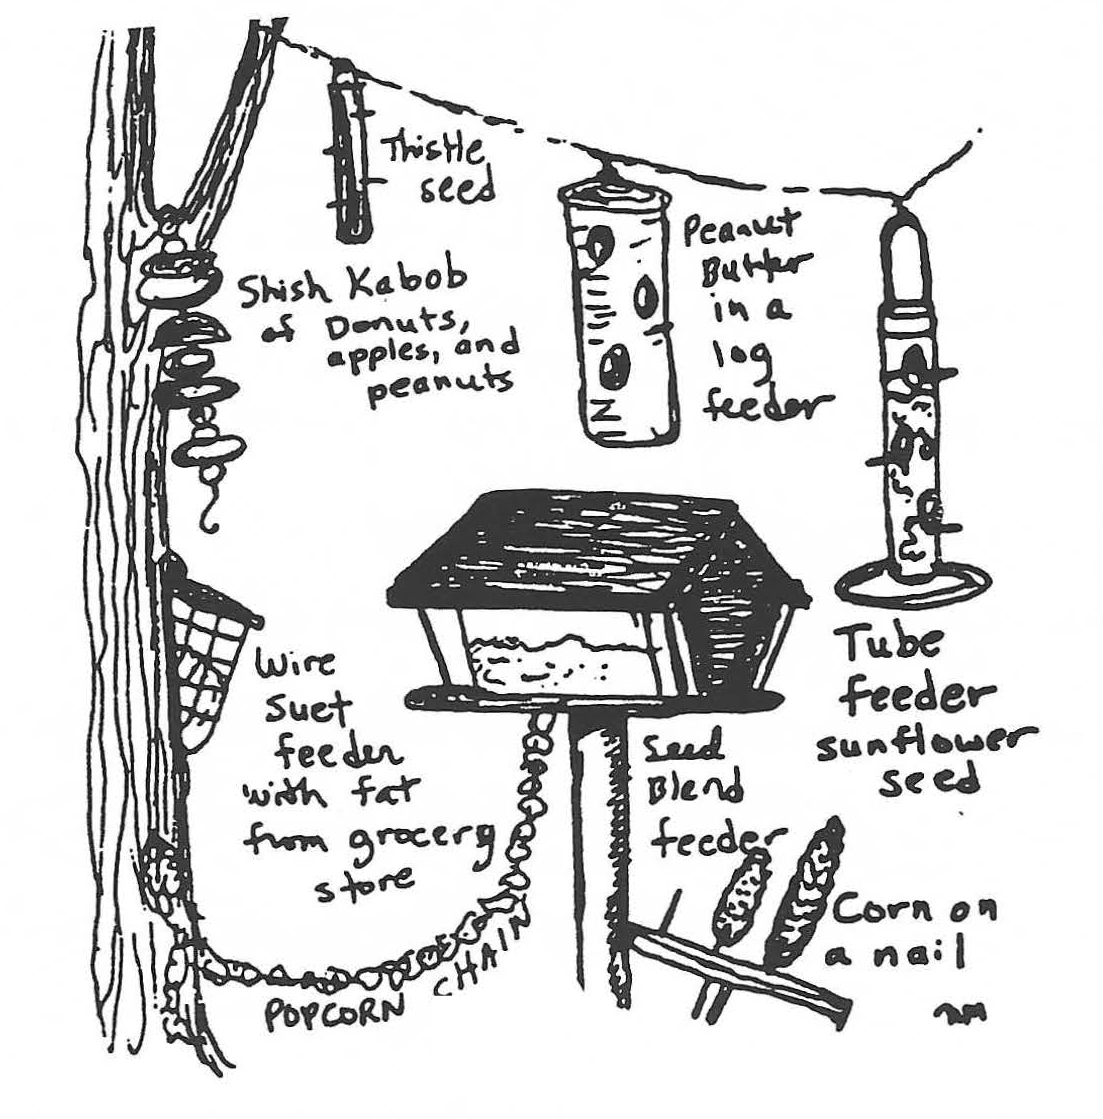 Thistle
seed
Peanut
Butter
in a
log
feeder
Shish Kabob
of Donuts,
apples, and
peanuts
Tube
feeder
sunflower
seed
Wire
suet
feeder
with fat
from grocery
store
Seed
Blend
feeder
Corn on
a nail
POPCORN CHAIN